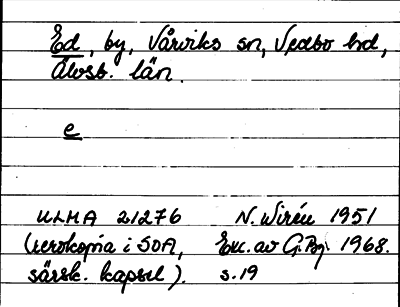 Ed, by, Vårviks sn, Vedbo hd,
Älvsb. län.
e
ULMA 21276 N. Wirén 1951
(xerokopia i SOA, Exc. av G. Pg. 1968.
särsk. kapsel). s. 19